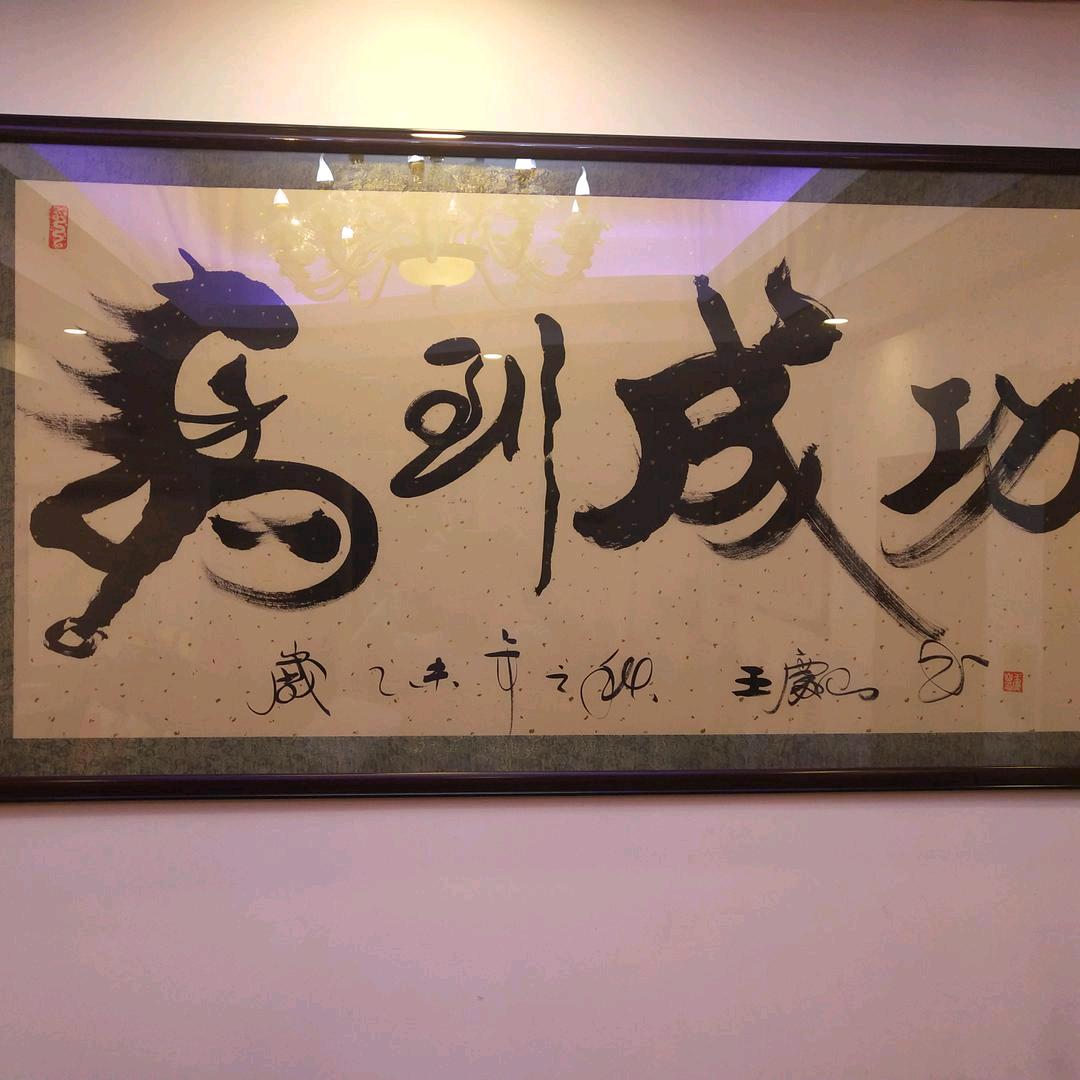 馬到成功
歲乙未年之秋 王 书